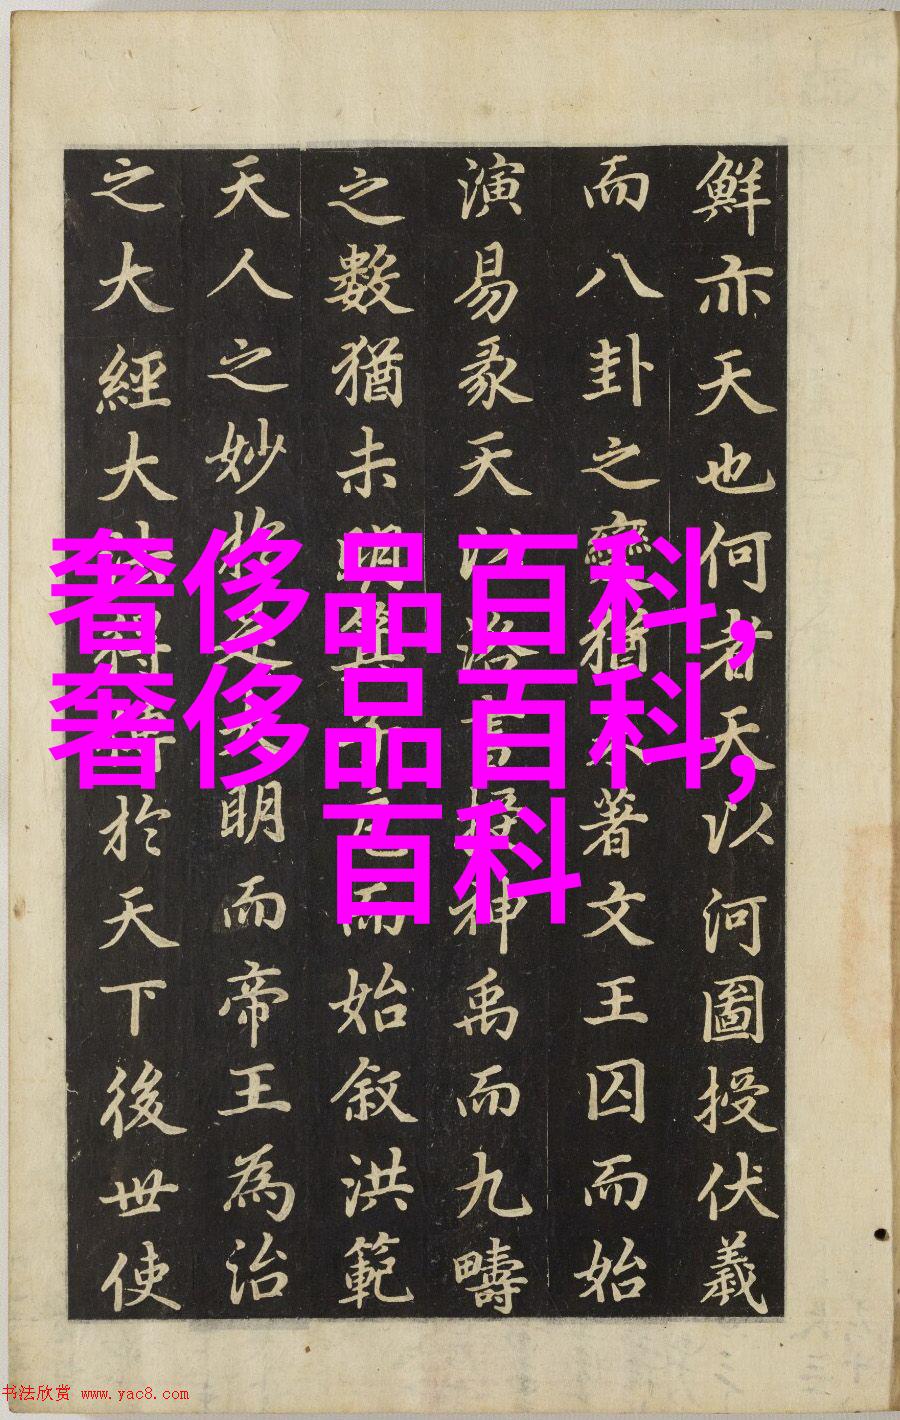 鮮亦天也何者天以河圖授伏羲
而八卦之變猶著文王囚而始
演易彖天以洛書授神禹而九疇
之數猶未明箕子而始叙洪範
天人之妙明而帝王為治
之大經大法於天下後世使
奢侈品百科,
奢侈品百科,
百科
书法欣赏 www.yac8.com